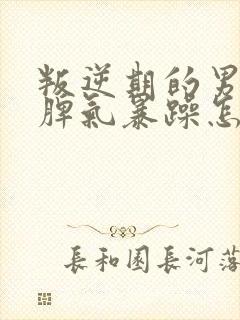 叛逆期的男
脾气暴躁怎
長和園長河落